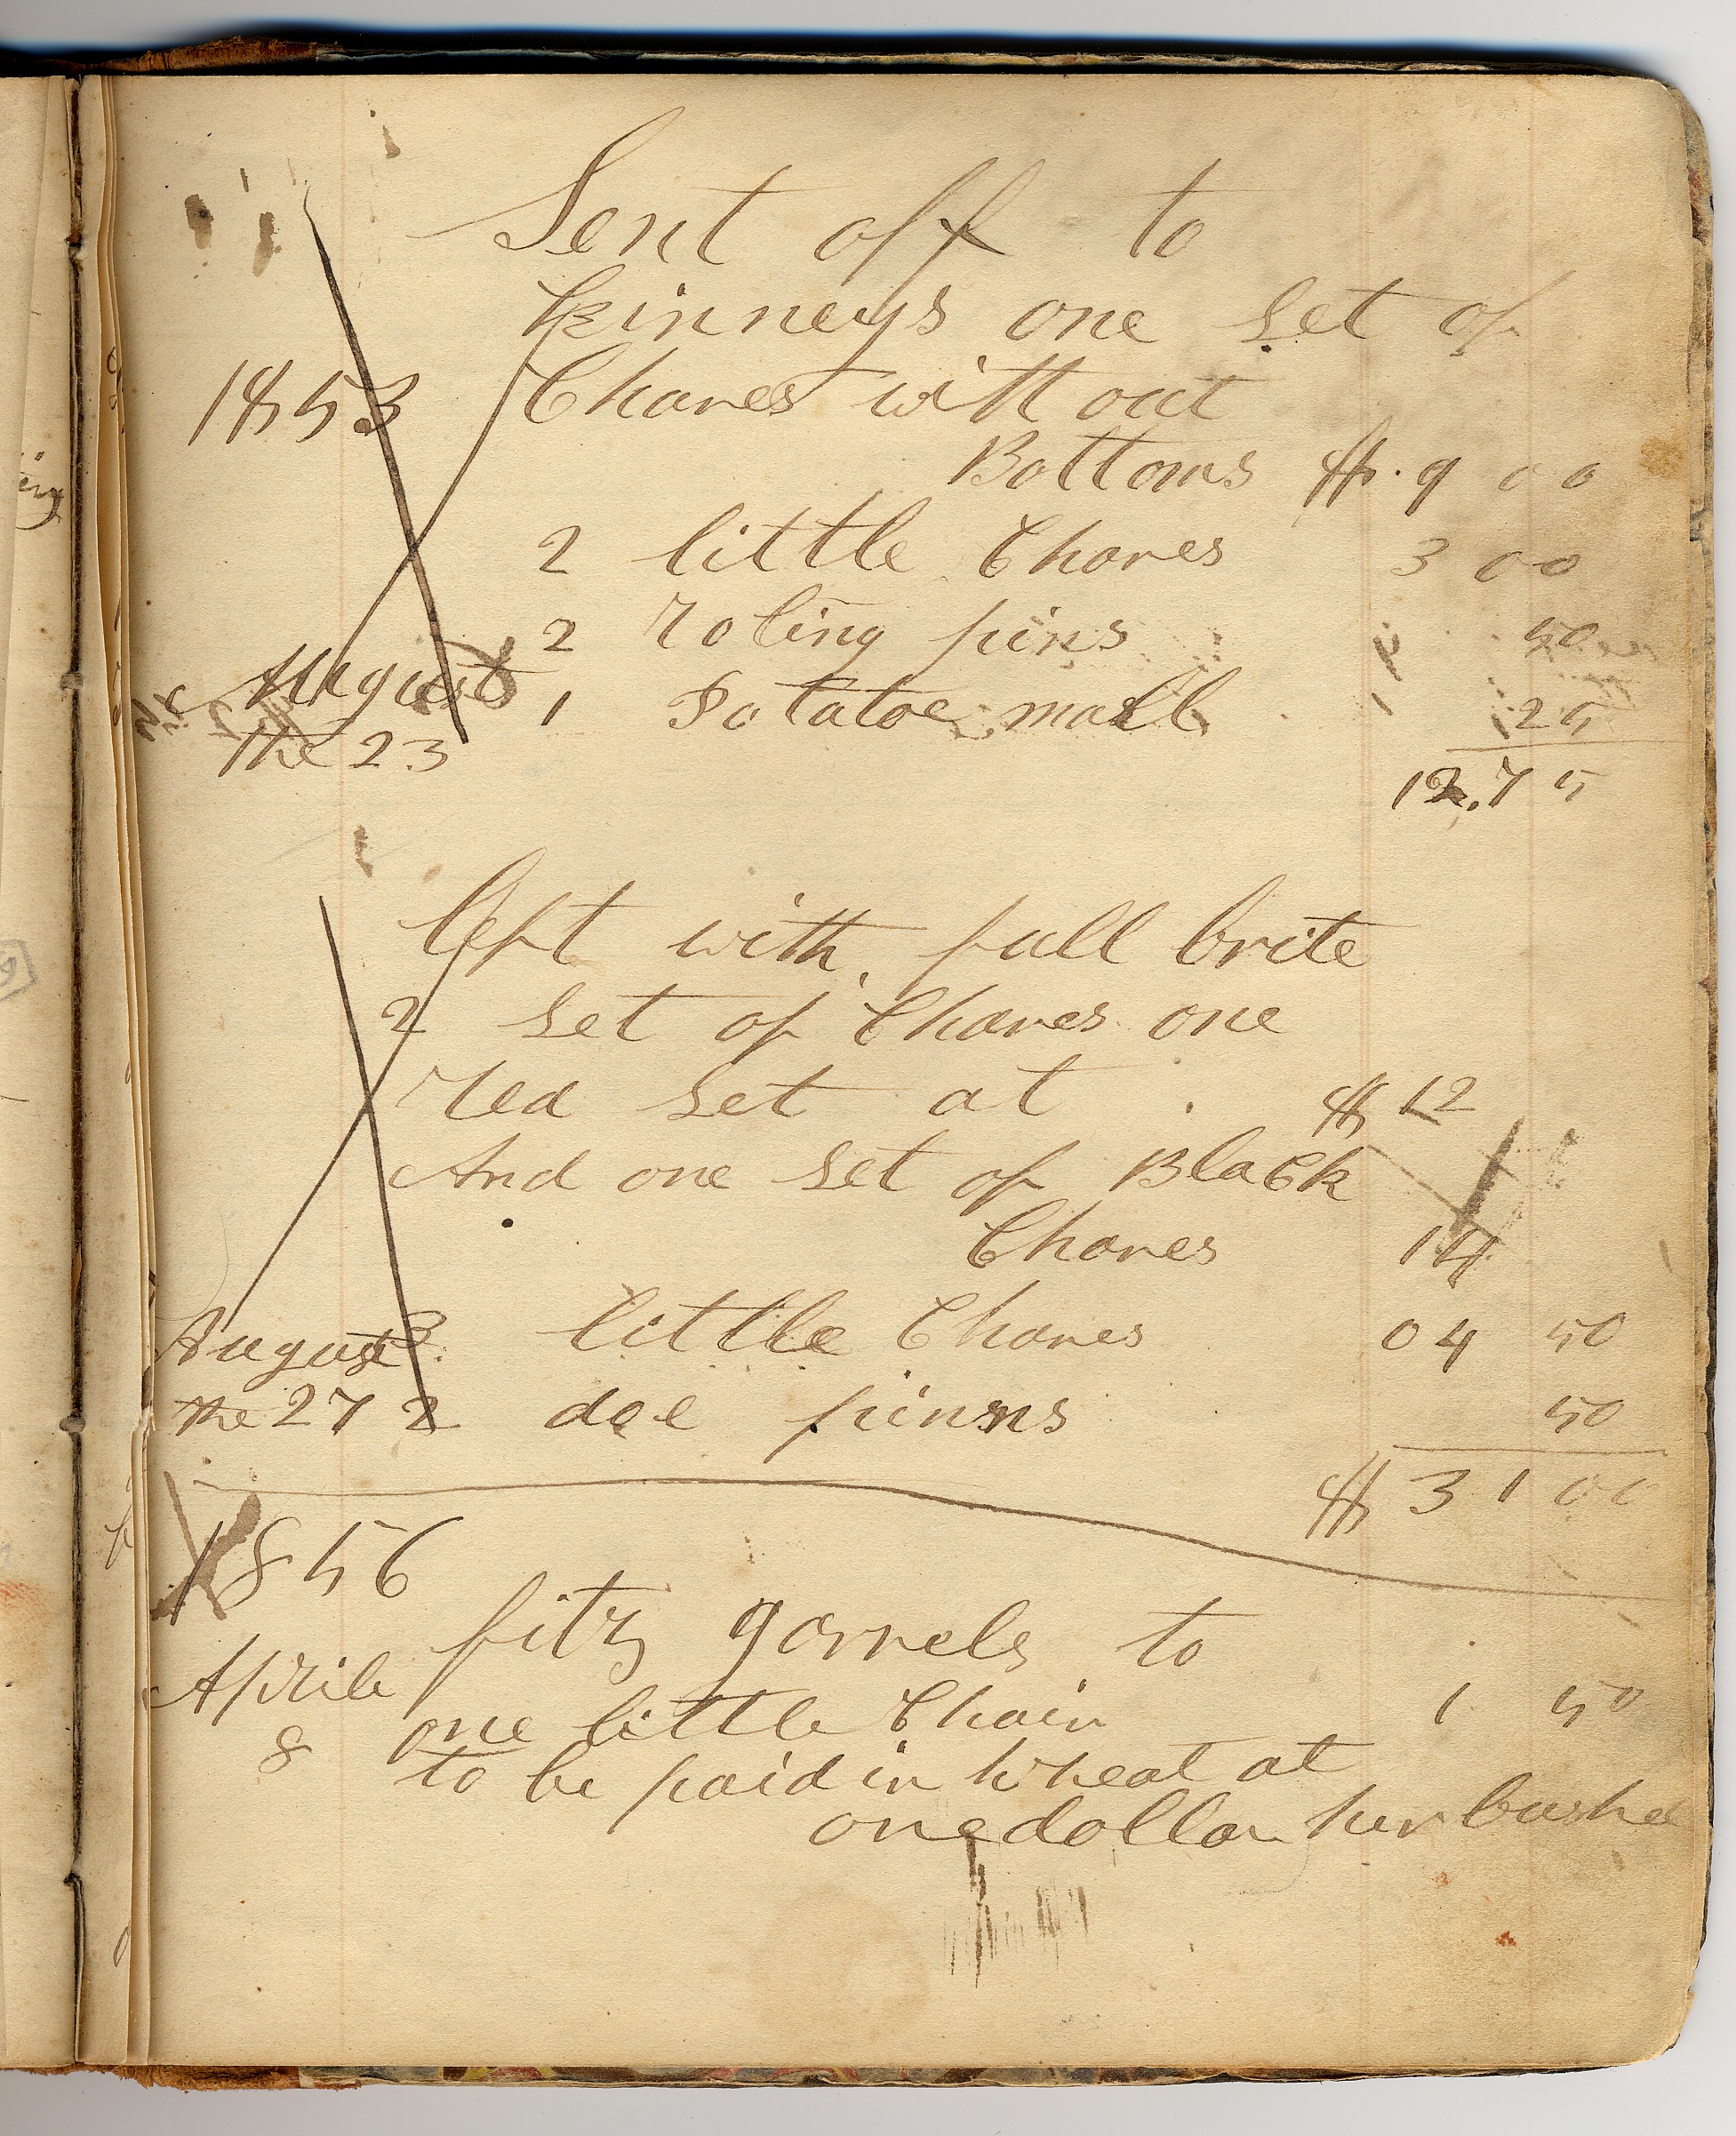 Sent off to
kinneys one set of
1853 Chares without
Bottoms $ . 9 00
2 little Chares 3 00
2 roling pins 50
August 1 Potatoe mall 25
the 23
12.75
left with full brite
2 set of Chares one
red set at $ 12
And one set of Black
Chares 14
August 3 little Chares 04 50
the 27 2 doe pinns 50
$ 31 00
1856
fitz gorrels to
Aprile
one little Chair 1 50
8 to be paid in wheat at
one dollar per bushel